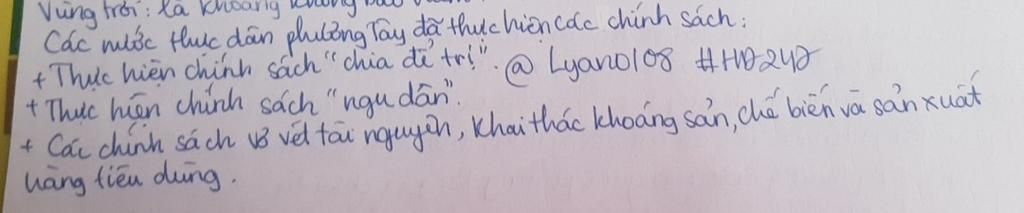 Vùng trời: là khoảng không bao
Các nước thực dân phương Tây đã thực hiện các chính sách:
+ Thực hiện chính sách "chia để trị". @ Lyano108 #HD247
+ Thực hiện chính sách "ngu dân".
+ Các chính sách vơ vét tài nguyên, khai thác khoáng sản, chế biến và sản xuất
hàng tiêu dùng.